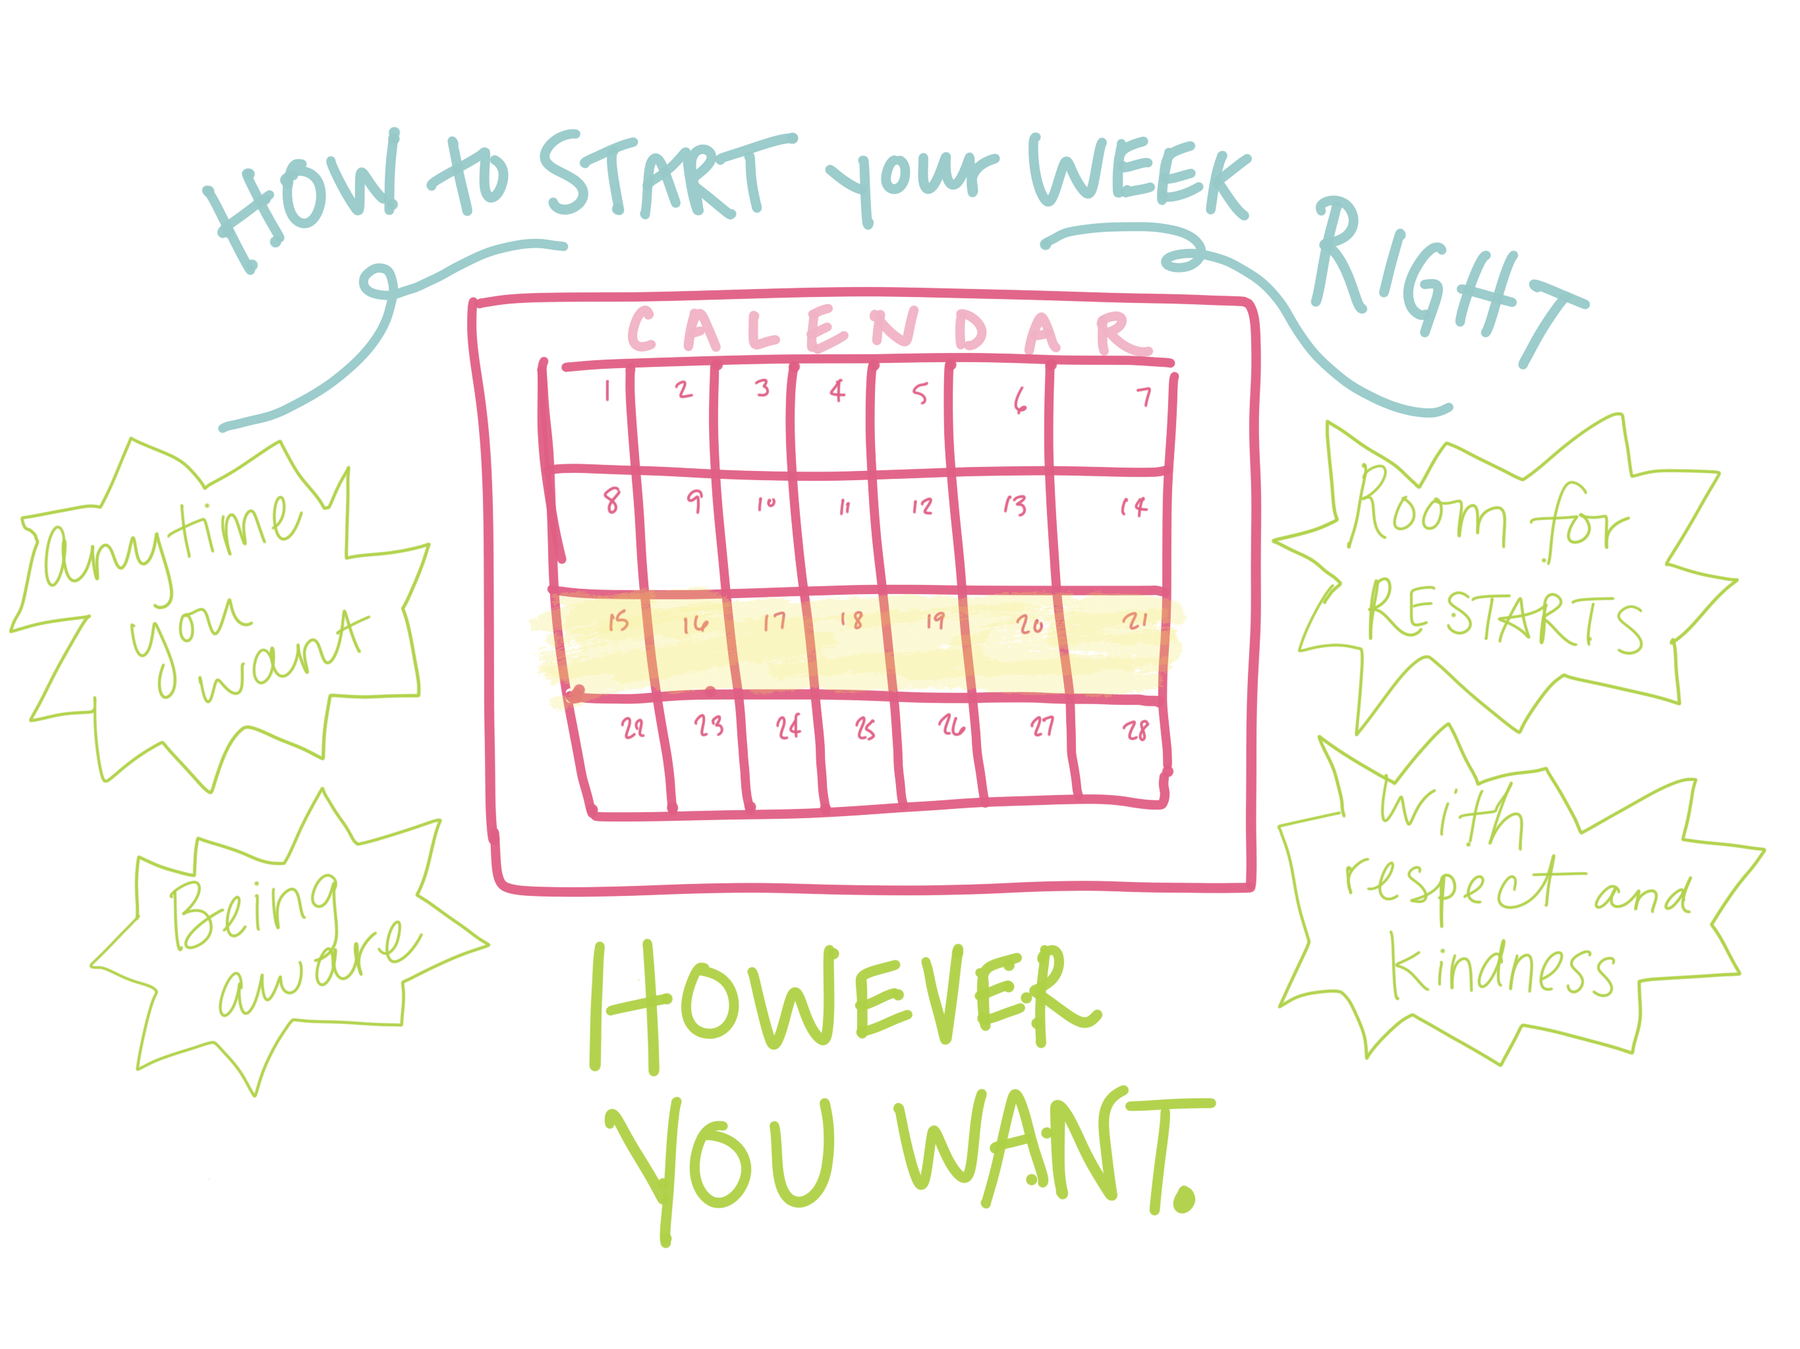 HOW to START your WEEK RIGHT
CALENDAR
1 2 3 4 5 6 7
8 9 10 11 12 13 14
15 16 17 18 19 20 21
22 23 24 25 26 27 28
Anytime
you
want
Being
aware
Room for
RESTARTS
With
respect and
kindness
HOWEVER
YOU WANT.